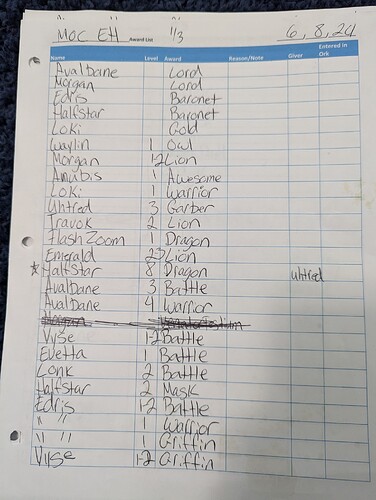 MOC EH Award List 1/3 6,8,24
Name Level Award Reason/Note Giver Entered in Ork
AvalDane Lord
Morgan Lord
Edris Baronet
Halfstar Baronet
Loki Gold
Waylin 1 Owl
Morgan 1-2 Lion
Anubis 1 Awesome
Loki 1 Warrior
Uhtred 3 Garber
Travok 2 Lion
Flash Zoom 1 Dragon
Emerald 23 Lion
* Halfstar 8 Dragon uhtred
AvalDane 3 Battle
AvalDane 4 Warrior
Morgan
Vyse 1-2 Battle
Evetta 1 Battle
Lonk 2 Battle
Halfstar 2 Mask
Edris 1-2 Battle
" " 1 Warrior
" " 1 Griffin
Vyse 1-2 Griffin